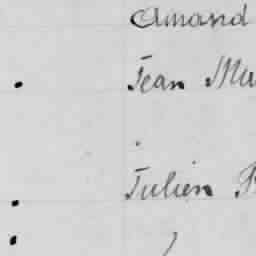 Amand
Jean Mu
Julien